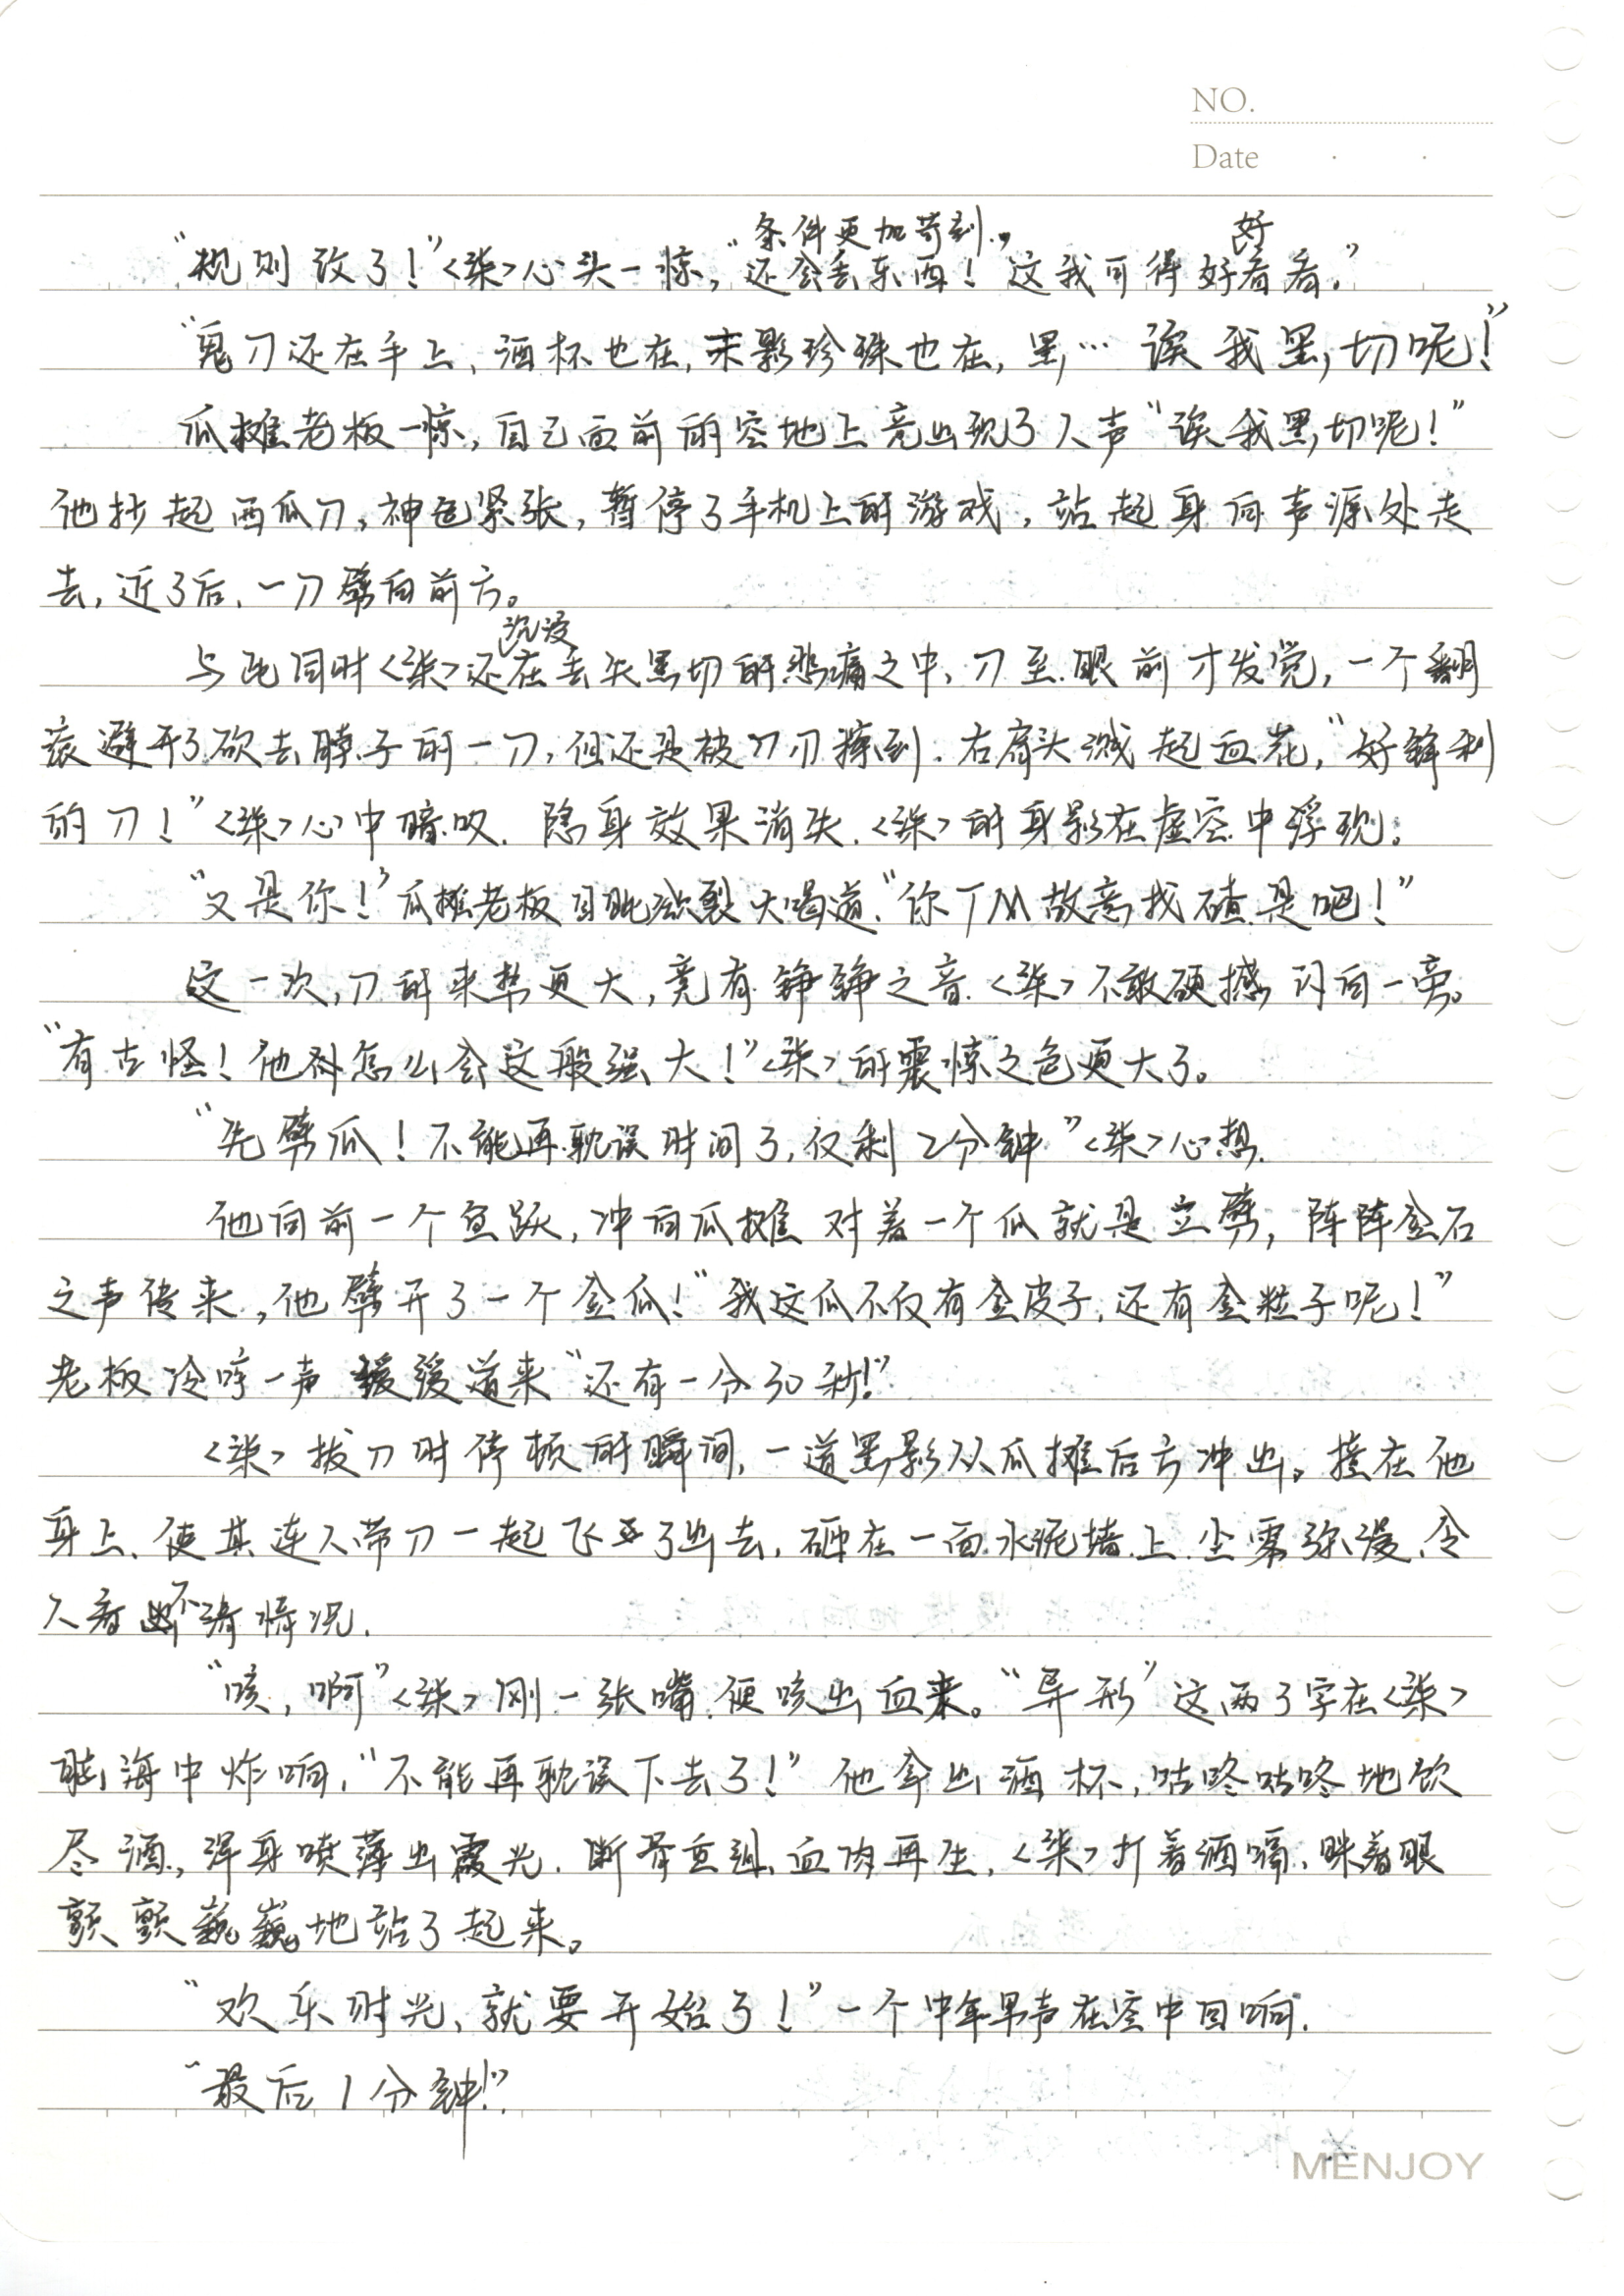 NO.
Date
条件更加苛刻， 好
“规则改了！”<柒>心头一惊，“还会丢东西！这我可得好看看。”
“鬼刀还在手上，酒杯也在，末影珍珠也在，黑，… 诶我黑切呢！”
瓜摊老板一惊，自己面前的空地上竟出现了人声“诶我黑切呢！”
他抄起西瓜刀，神色紧张，暂停了手机上的游戏，站起身向声源处走
去，近了后，一刀劈向前方。
沉浸
与此同时<柒>还在丢失黑切的悲痛之中，刀至眼前才发觉，一个翻
滚避开了砍去脖子的一刀，但还是被刀刃擦到，右肩头溅起血花，“好锋利
的刀！”<柒>心中暗叹，隐身效果消失，<柒>的身影在虚空中浮现。
“又是你！”瓜摊老板目眦欲裂大喝道“你TM故意找碴是吧！”
这一次，刀的来势更大，竟有铮铮之音，<柒>不敢硬撼，闪向一旁。
“有古怪！他怎么会这般强大！”<柒>的震惊之色更大了。
“先劈瓜！不能再耽误时间了，仅剩2分钟”<柒>心想.
他向前一个鱼跃，冲向瓜摊对着一个瓜就是立劈，阵阵金石
之声传来，他劈开了一个金瓜！“我这瓜不仅有金皮子，还有金粒子呢！”
老板冷哼一声缓缓道来“还有一分30秒！”
<柒>拔刀时停顿的瞬间，一道黑影从瓜摊后方冲出，撞在他
身上，使其连人带刀一起飞了出去，砸在一面水泥墙上，尘雾弥漫，令
人看不清情况.
“咳，啊”<柒>刚一张嘴，便咳出血来。“异形”这两个字在<柒>
脑海中炸响，“不能再耽误下去了！”他拿出酒杯，咕咚咕咚地饮
尽酒，浑身喷薄出霞光，断骨重组，血肉再生，<柒>打着酒嗝，眯着眼
颤颤巍巍地站了起来。
“欢乐时光，就要开始了！”一个中年男声在空中回响.
“最后1分钟！”
MENJOY